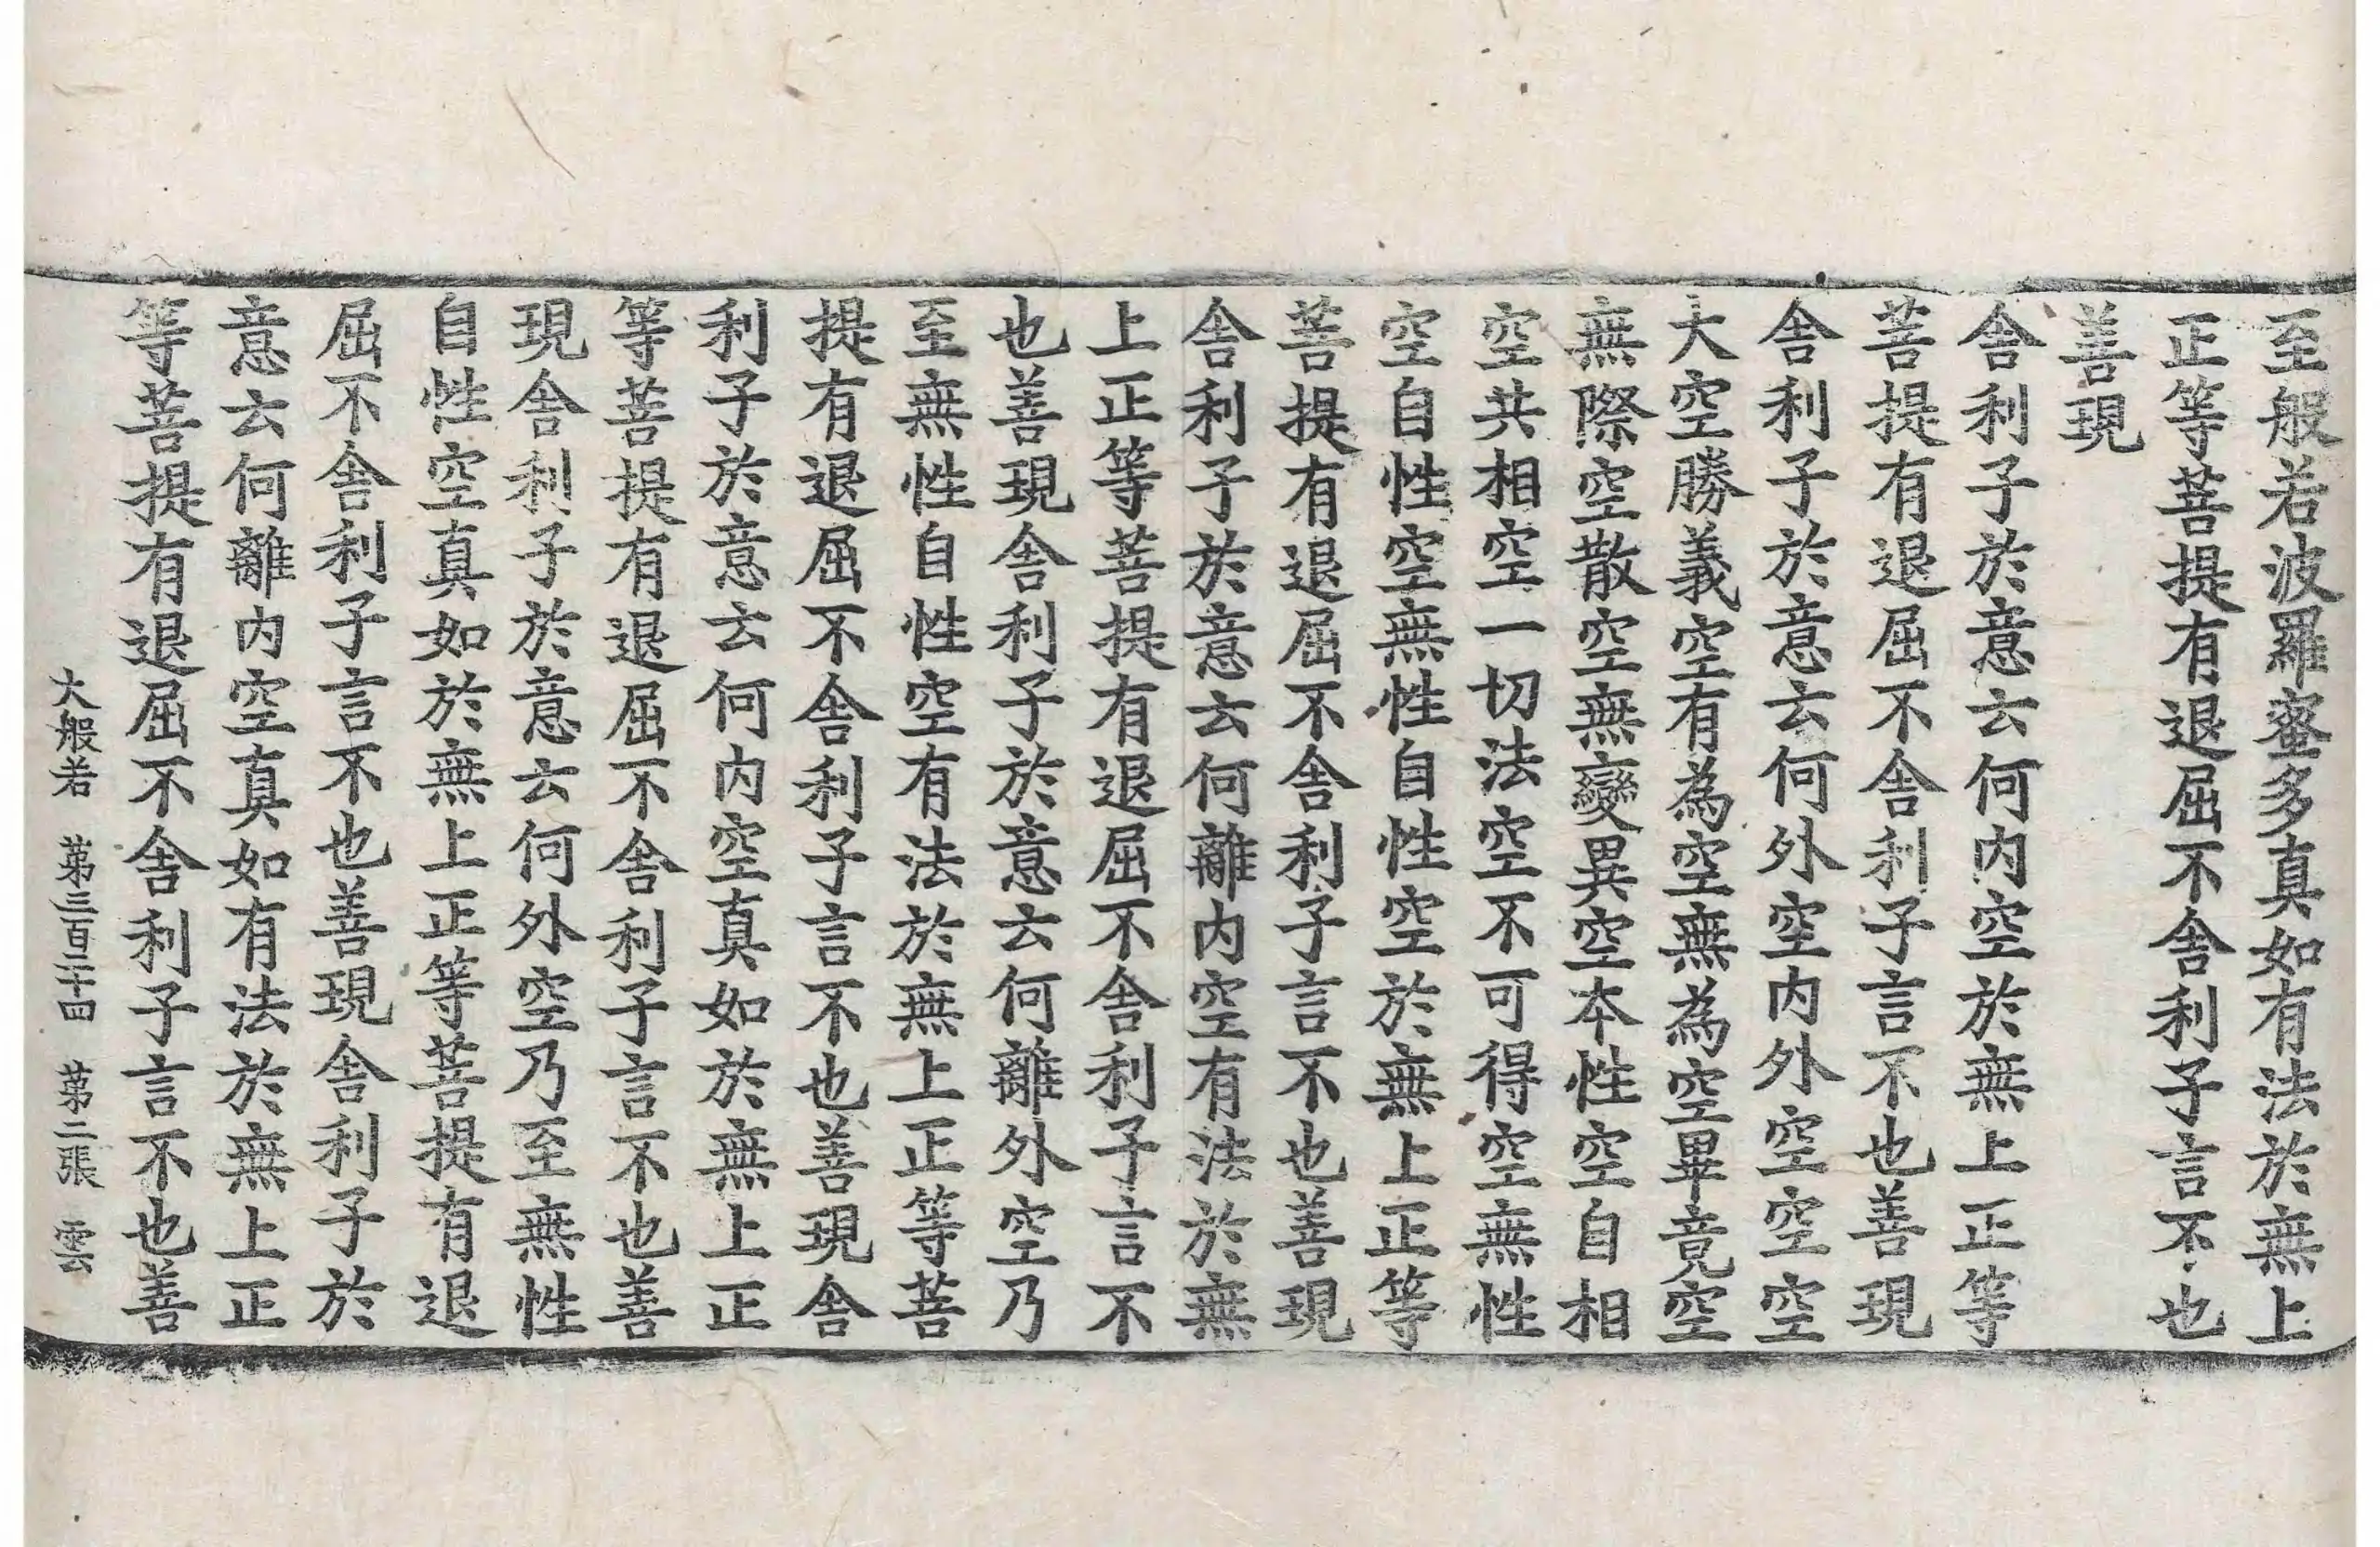 至般若波羅蜜多真如有法於無上
正等菩提有退屈不舍利子言不也
善現
舍利子於意云何內空於無上正等
菩提有退屈不舍利子言不也善現
舍利子於意云何外空內外空空空
大空勝義空有為空無為空畢竟空
無際空散空無變異空本性空自相
空共相空一切法空不可得空無性
空自性空無性自性空於無上正等
菩提有退屈不舍利子言不也善現
舍利子於意云何離內空有法於無
上正等菩提有退屈不舍利子言不
也善現舍利子於意云何離外空乃
至無性自性空有法於無上正等菩
提有退屈不舍利子言不也善現舍
利子於意云何內空真如於無上正
等菩提有退屈不舍利子言不也善
現舍利子於意云何外空乃至無性
自性空真如於無上正等菩提有退
屈不舍利子言不也善現舍利子於
意云何離內空真如有法於無上正
等菩提有退屈不舍利子言不也善
大般若 第三百二十四 第二張 雲